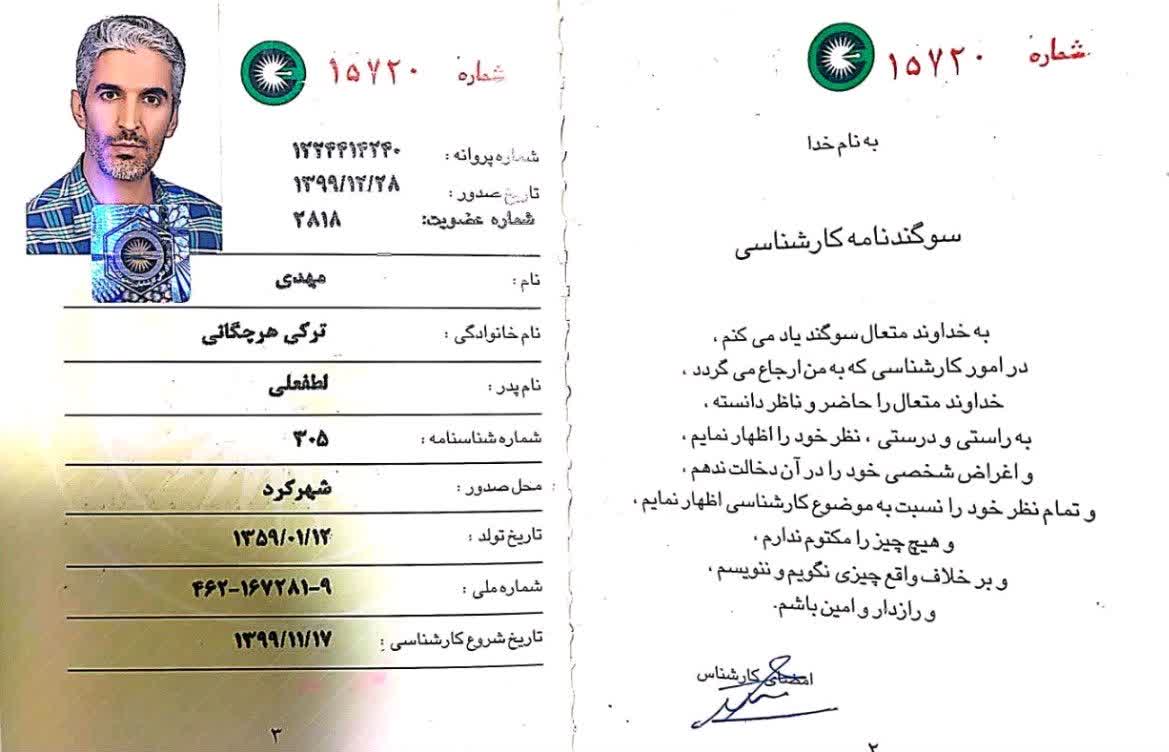 شماره ۱۵۷۲۰
به نام خدا
سوگندنامه کارشناسی
به خداوند متعال سوگند یاد می کنم ،
در امور کارشناسی که به من ارجاع می گردد ،
خداوند متعال را حاضر و ناظر دانسته ،
به راستی و درستی ، نظر خود را اظهار نمایم ،
و اغراض شخصی خود را در آن دخالت ندهم ،
و تمام نظر خود را نسبت به موضوع کارشناسی اظهار نمایم ،
و هیچ چیز را مکتوم ندارم ،
و بر خلاف واقع چیزی نگویم و ننویسم ،
و رازدار و امین باشم.
امضای کارشناس
۲
شماره ۱۵۷۲۰
شماره پروانه :
تاریخ صدور : ۱۳۹۹/۱۲/۲۸
شماره عضویت: ۲۸۱۸
نام : مهدی
نام خانوادگی : ترکی هرچگانی
نام پدر : لطفعلی
شماره شناسنامه : ۳۰۵
محل صدور : شهرکرد
تاریخ تولد : ۱۳۵۹/۰۱/۱۲
شماره ملی : ۴۶۲-۱۶۷۲۸۱-۹
تاریخ شروع کارشناسی : ۱۳۹۹/۱۱/۱۷
۳